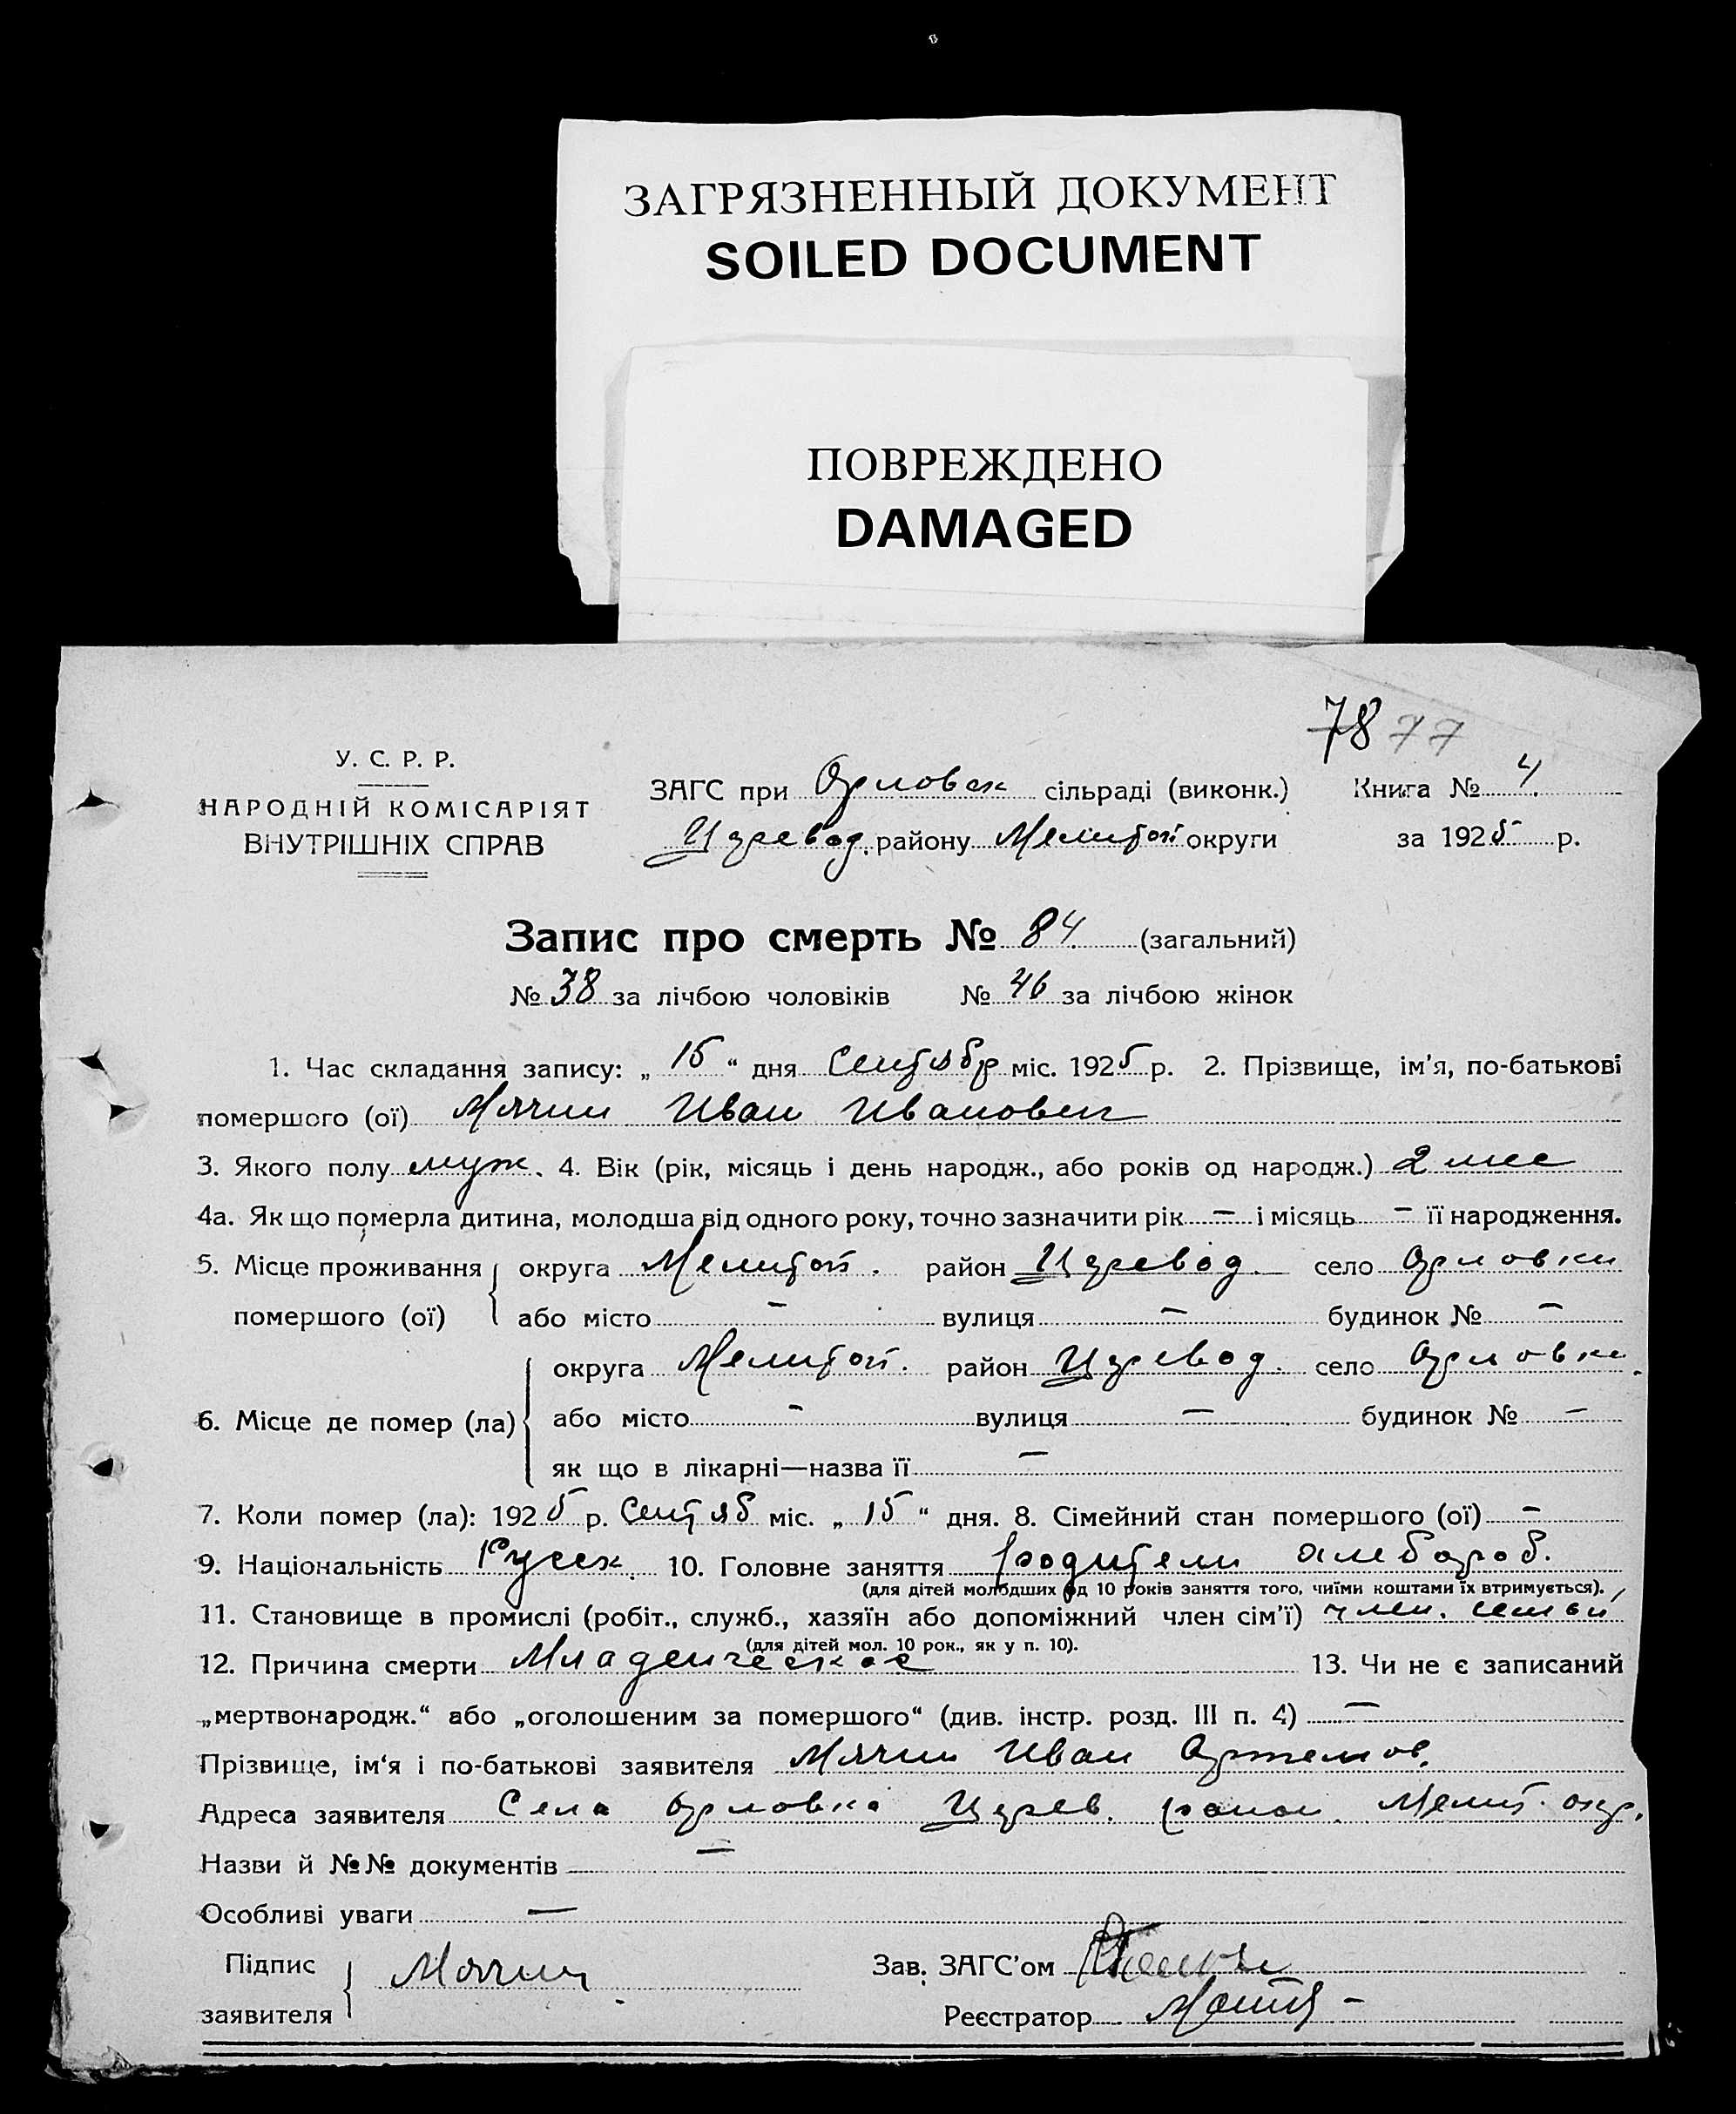 ЗАГРЯЗНЕННЫЙ ДОКУМЕНТ
SOILED DOCUMENT
ПОВРЕЖДЕНО
DAMAGED
78 77
У. С. Р. Р.
НАРОДНІЙ КОМІСАРІЯТ
ВНУТРІШНІХ СПРАВ
ЗАГС при Орловск сільраді (виконк.)
Царевод. району Мелитоп округи
Книга № 4
за 1925 р.
Запис про смерть № 84 (загальний)
№ 38 за лічбою чоловіків № 46 за лічбою жінок
1. Час складання запису: „ 15 “ дня Сентябр міс. 1925 р. 2. Прізвище, ім'я, по-батькові
помершого (ої) Мячин Иван Иванович
3. Якого полу муж. 4. Вік (рік, місяць і день народж., або років од народж.) 2 мес
4а. Як що померла дитина, молодша від одного року, точно зазначити рік — і місяць — її народження.
5. Місце проживання округа Мелитоп. район Цревод. село Орловки
помершого (ої) або місто — вулиця — будинок № —
округа Мелитоп. район Цревод. село Орловке.
6. Місце де помер (ла) або місто - вулиця — будинок № —
як що в лікарні—назва її —
7. Коли помер (ла): 1925 р. Сентяб міс. „ 15 “ дня. 8. Сімейний стан помершого (ої) —
9. Національність Русск. 10. Головне заняття родители
(для дітей молодших од 10 років заняття того, чиїми коштами їх втримується).
11. Становище в промислі (робіт., служб., хазяїн або допоміжний член сім'ї) член. семьи
(для дітей мол. 10 рок., як у п. 10).
12. Причина смерти Младенческое 13. Чи не є записаний
„мертвонародж.“ або „оголошеним за помершого“ (див. інстр. розд. III п. 4) —
Прізвище, ім‘я і по-батькові заявителя Мячин Иван Артемов.
Адреса заявителя Села Орловка Царев. район. Мелит. окр.
Назви й №№ документів —
Особливі уваги —
Підпис заявителя Мячин
Зав. ЗАГС'ом
Реєстратор